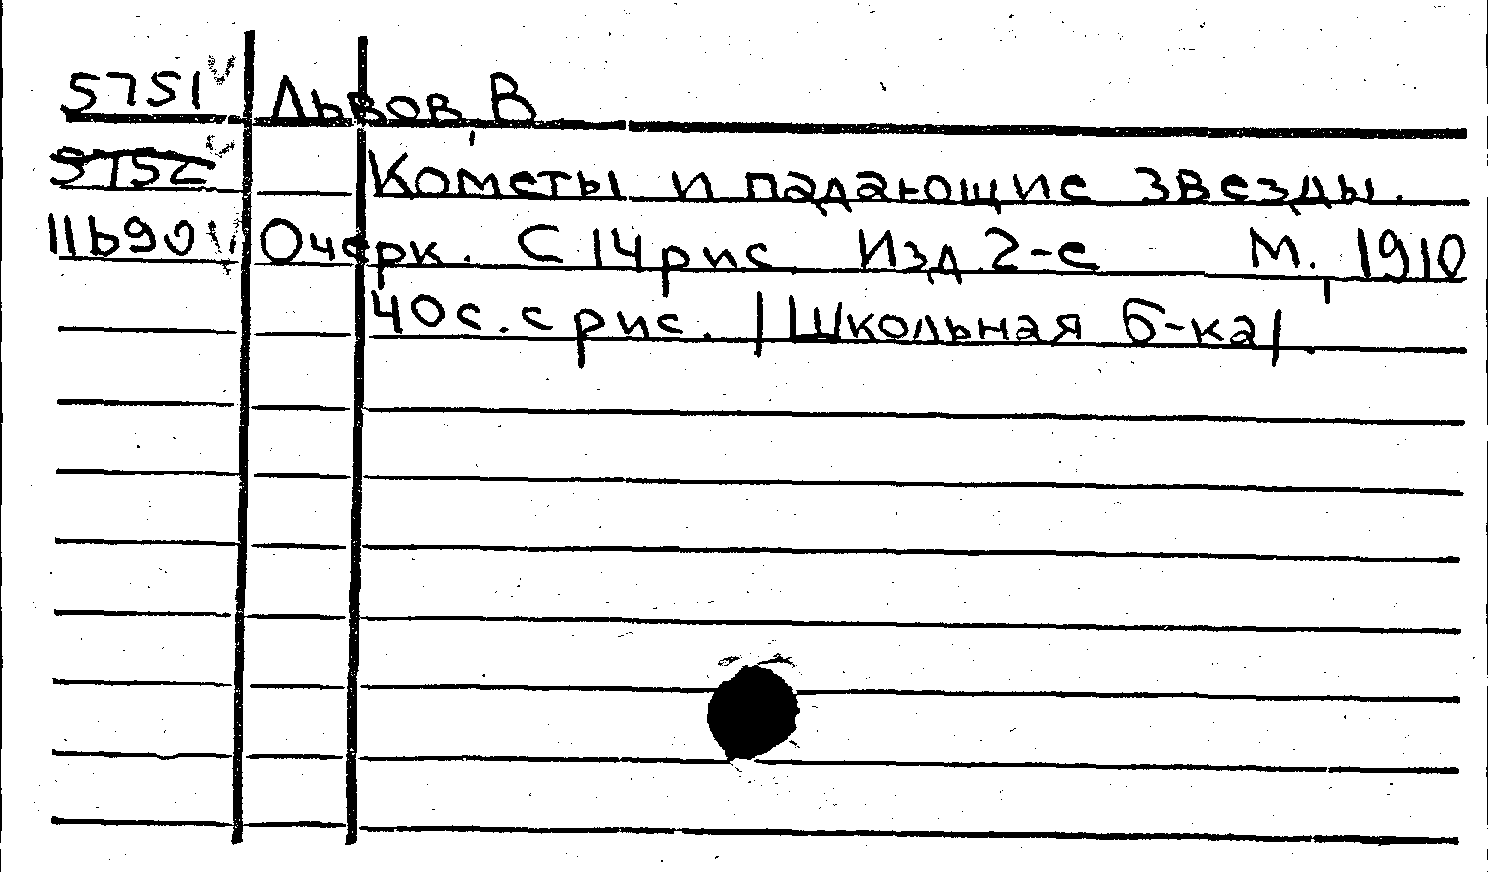 5751 Львов, В
5752 Кометы и падающие звезды.
11690 Очерк. С 14 рис Изд. 2-е М., 1910
40 с. с рис. /Школьная б-ка/.